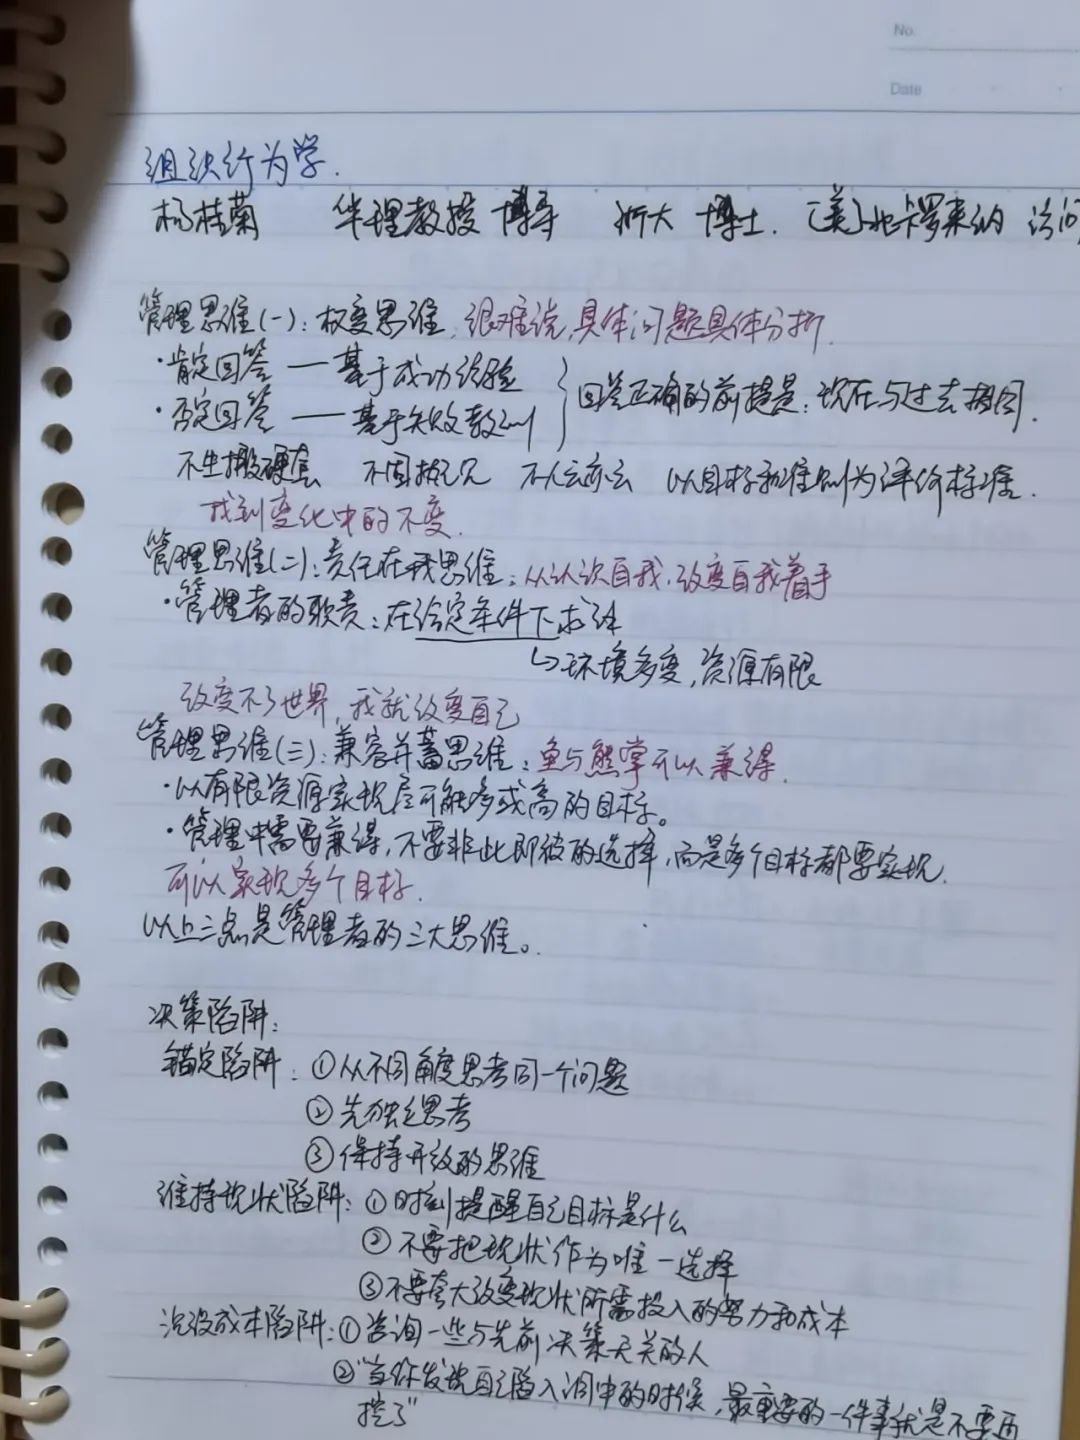 No.
Date
组织行为学.
杨桂菊 华理教授 博导 浙大 博士. (美)北卡罗来纳 访问
管理思维(一): 权变思维. 很难说,具体问题具体分析.
·肯定回答 —— 基于成功经验
·否定回答 —— 基于失败教训
} 回答正确的前提是: 现在与过去相同.
不生搬硬套 不因循 不人云亦云 以目标和准则为评价标准.
找到变化中的不变.
管理思维(二): 责任在我思维: 从认识自我.改变自我着手
·管理者的职责: 在给定条件下求解
↳环境多变,资源有限
改变不了世界,我就改变自己
管理思维(三): 兼容并蓄思维: 鱼与熊掌可以兼得.
·以有限资源实现尽可能多或高的目标。
·管理中需要兼得,不要非此即彼的选择,而是多个目标都要实现.
可以实现多个目标.
以上三点是管理者的三大思维。
决策陷阱:
锚定陷阱: ①从不同角度思考同一个问题
②先独立思考
③保持开放的思维
维持现状陷阱: ①时刻提醒自己目标是什么
②不要把现状作为唯一选择
③不要夸大改变现状所需投入的努力和成本
沉没成本陷阱: ①咨询一些与先前决策无关的人
②"当你发现自己陷入洞中的时候,最重要的一件事就是不要再
挖了"